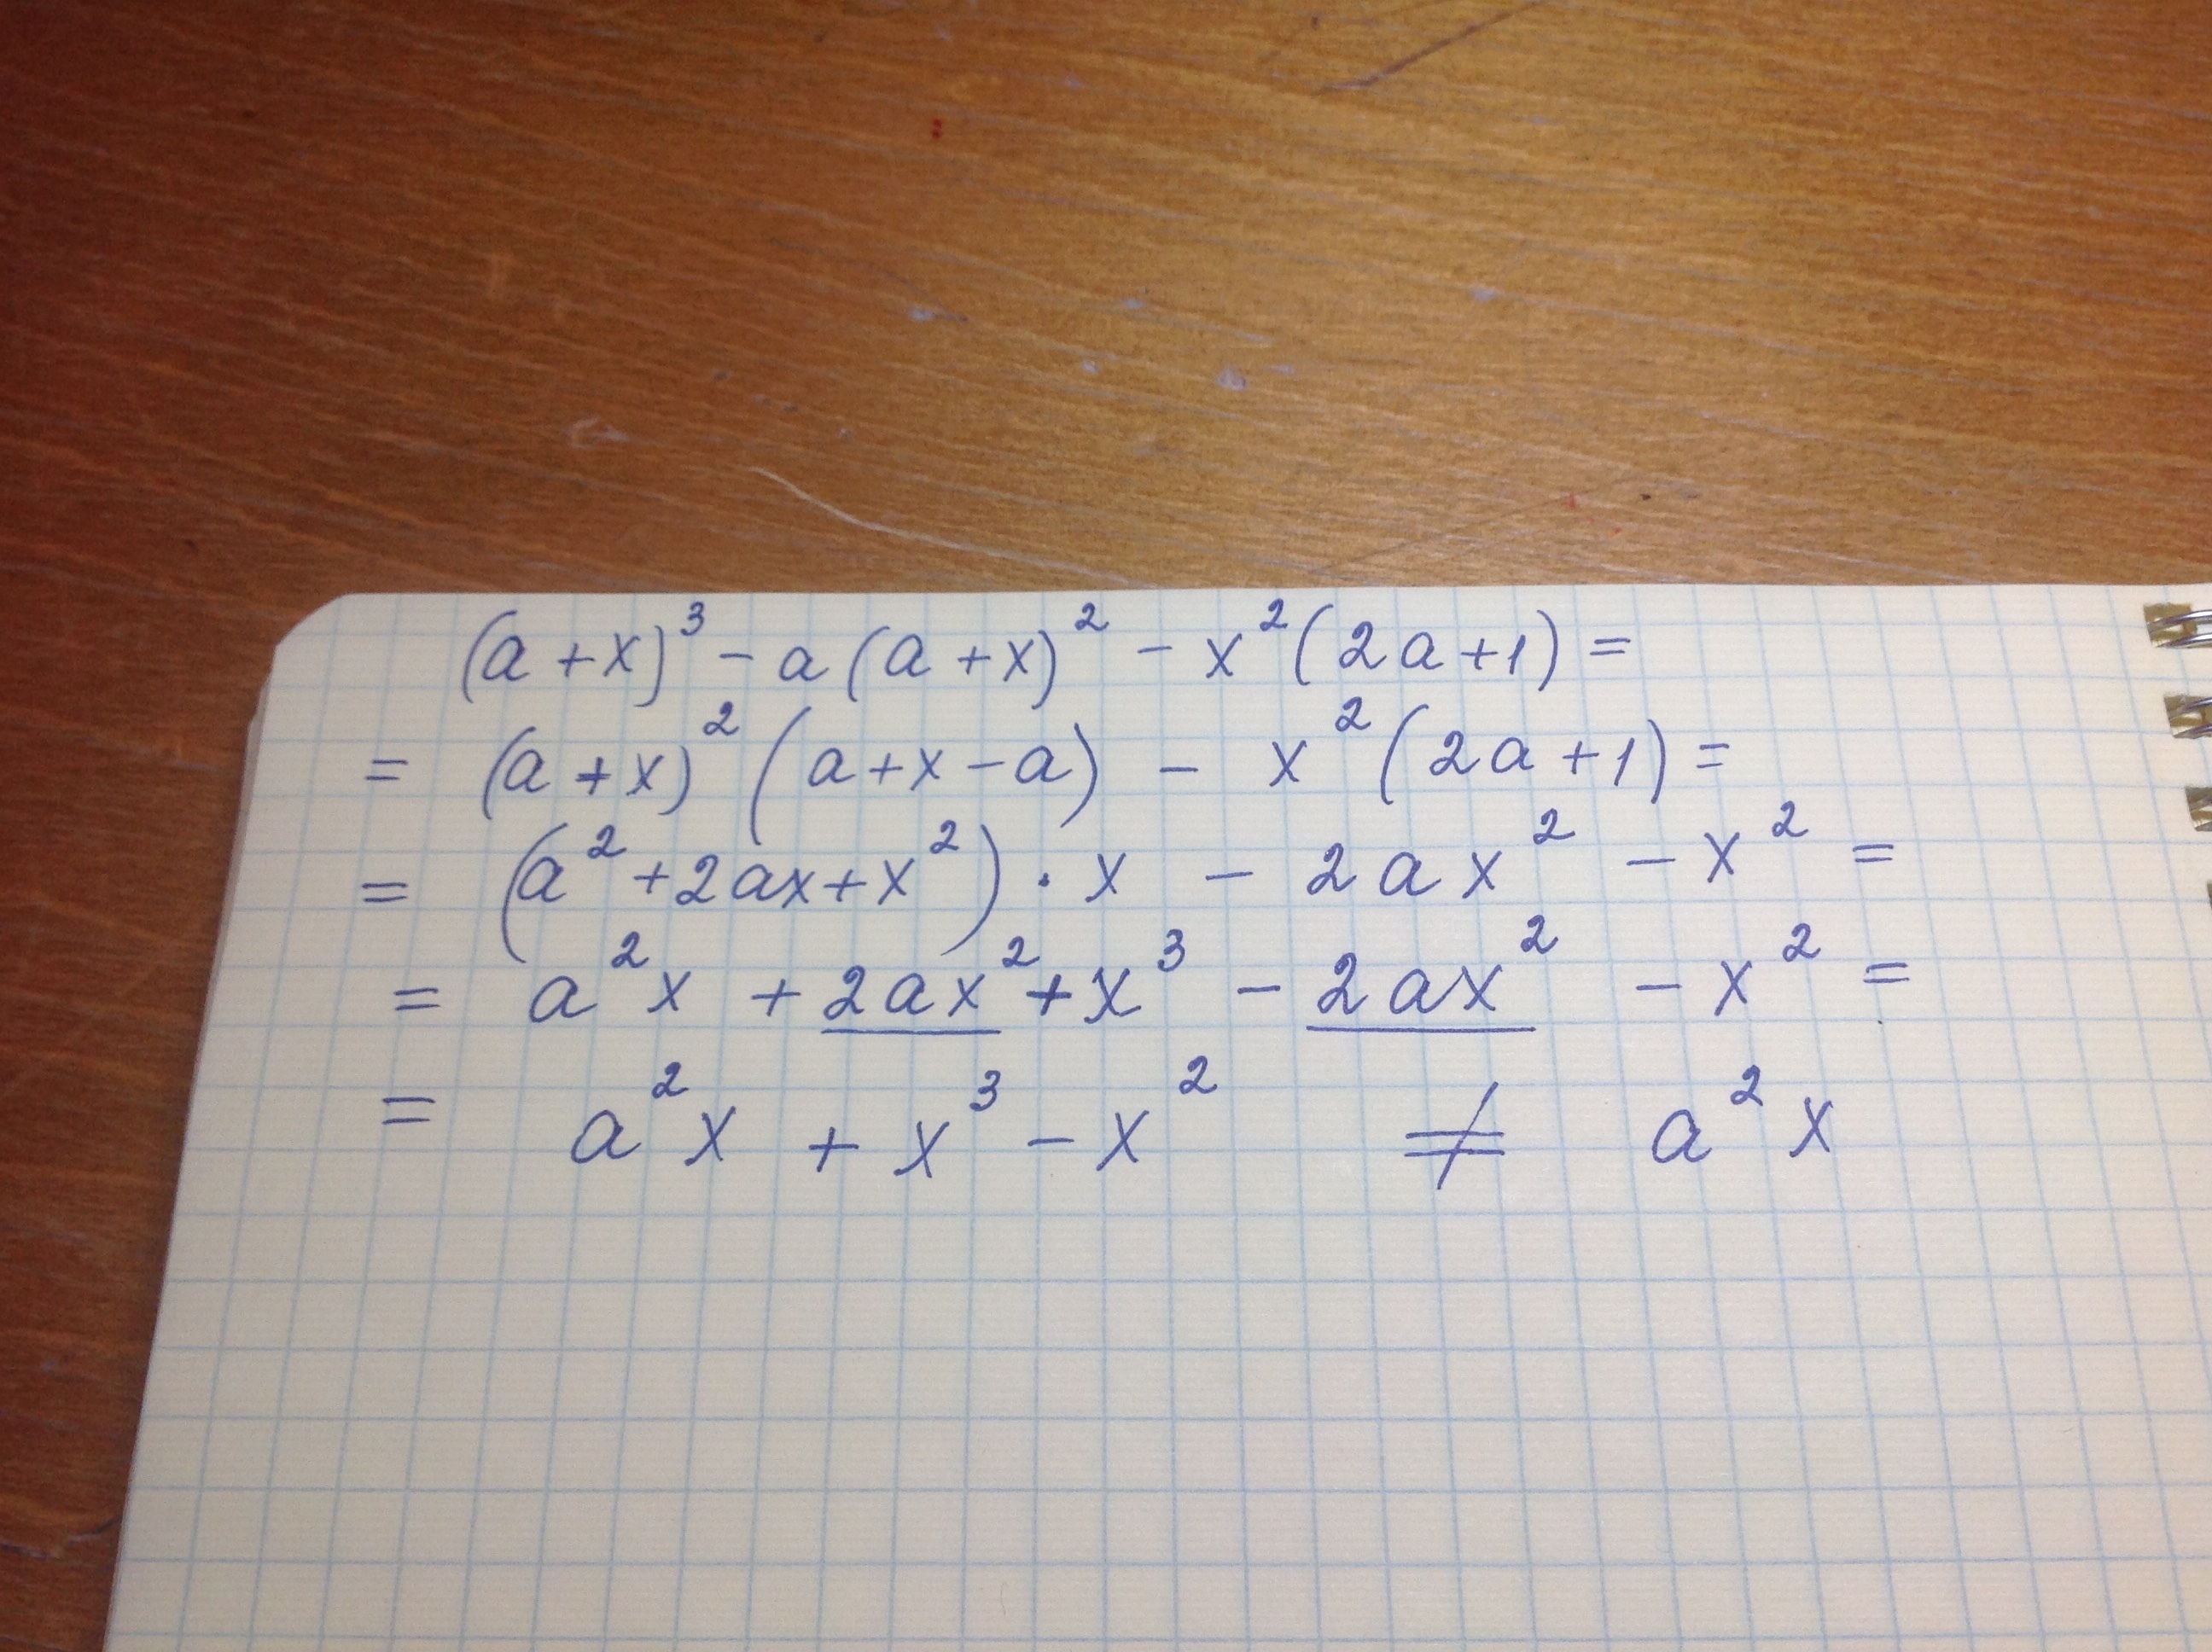 (a+x)³ - a(a+x)² - x²(2a+1) =
= (a+x)² (a+x-a) - x² (2a+1) =
= (a²+2ax+x²) · x - 2ax² - x² =
= a²x + 2ax² + x³ - 2ax² - x² =
= a²x + x³ - x² ≠ a²x